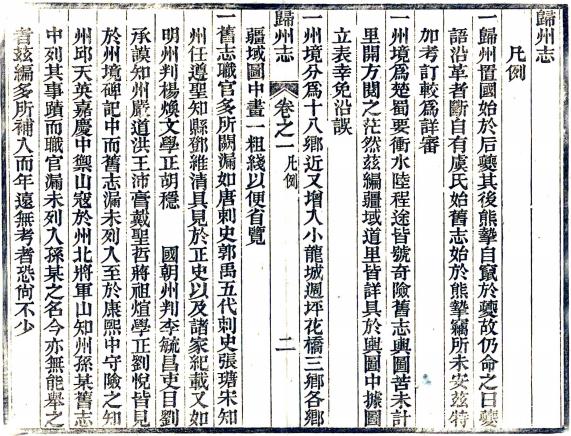 歸州志
凡例
一歸州置國始於后夔其後熊摯自竄於夔故仍命之曰夔
語沿革者斷自有虞氏始舊志始於熊摯竊所未安茲特
加考訂較爲詳審
一州境爲楚蜀要衝水陸程途皆號奇險舊志輿圖苦未計
里開方閱之茫然茲編疆域道里皆詳具於輿圖中據圖
立表幸免沿誤
一州境分爲十八鄉近又增入小龍城迴坪花橋三鄉各鄉
歸州志
卷之一
凡例
二
疆域圖中畫一粗綫以便省覽
一舊志職官多所闕漏如唐刺史郭禹五代刺史張瑭宋知
州任遵聖知縣鄧維清具見於正史以及諸家紀載又如
明州判楊煥文學正胡穩 國朝州判李毓昌吏目劉
承謨知州嚴道洪王沛膏戴聖哲將祖煊學正劉悅皆見
於州境碑記中而舊志漏未列入至於康熙中守險之知
州邱天英嘉慶中禦山寇於州北將軍山知州孫某舊志
中列其事蹟而職官漏未列入孫某之名今亦無能舉之
者茲編多所補入而年遠無考者恐尙不少